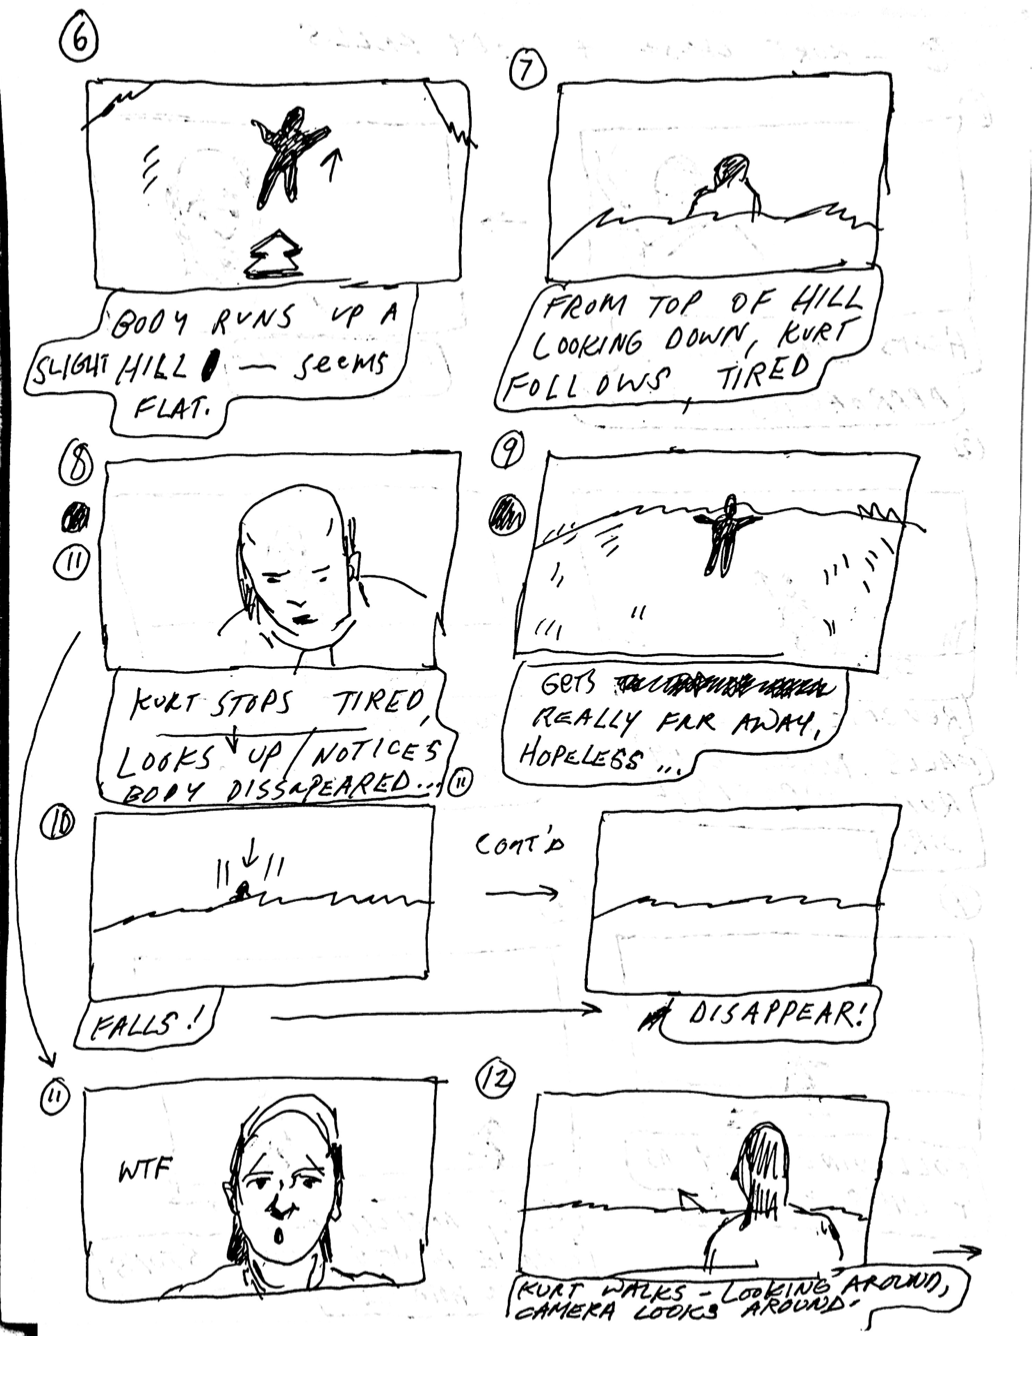 6
BODY RUNS UP A
SLIGHT HILL — SEEMS
FLAT.
7
FROM TOP OF HILL
LOOKING DOWN, KURT
FOLLOWS TIRED
8
11
KURT STOPS TIRED,
LOOKS UP / NOTICES
BODY DISSAPEARED... 11
9
GETS
REALLY FAR AWAY,
HOPELESS...
10
FALLS!
CONT'D
DISAPPEAR!
11
WTF
12
KURT WALKS - LOOKING AROUND,
CAMERA LOOKS AROUND.